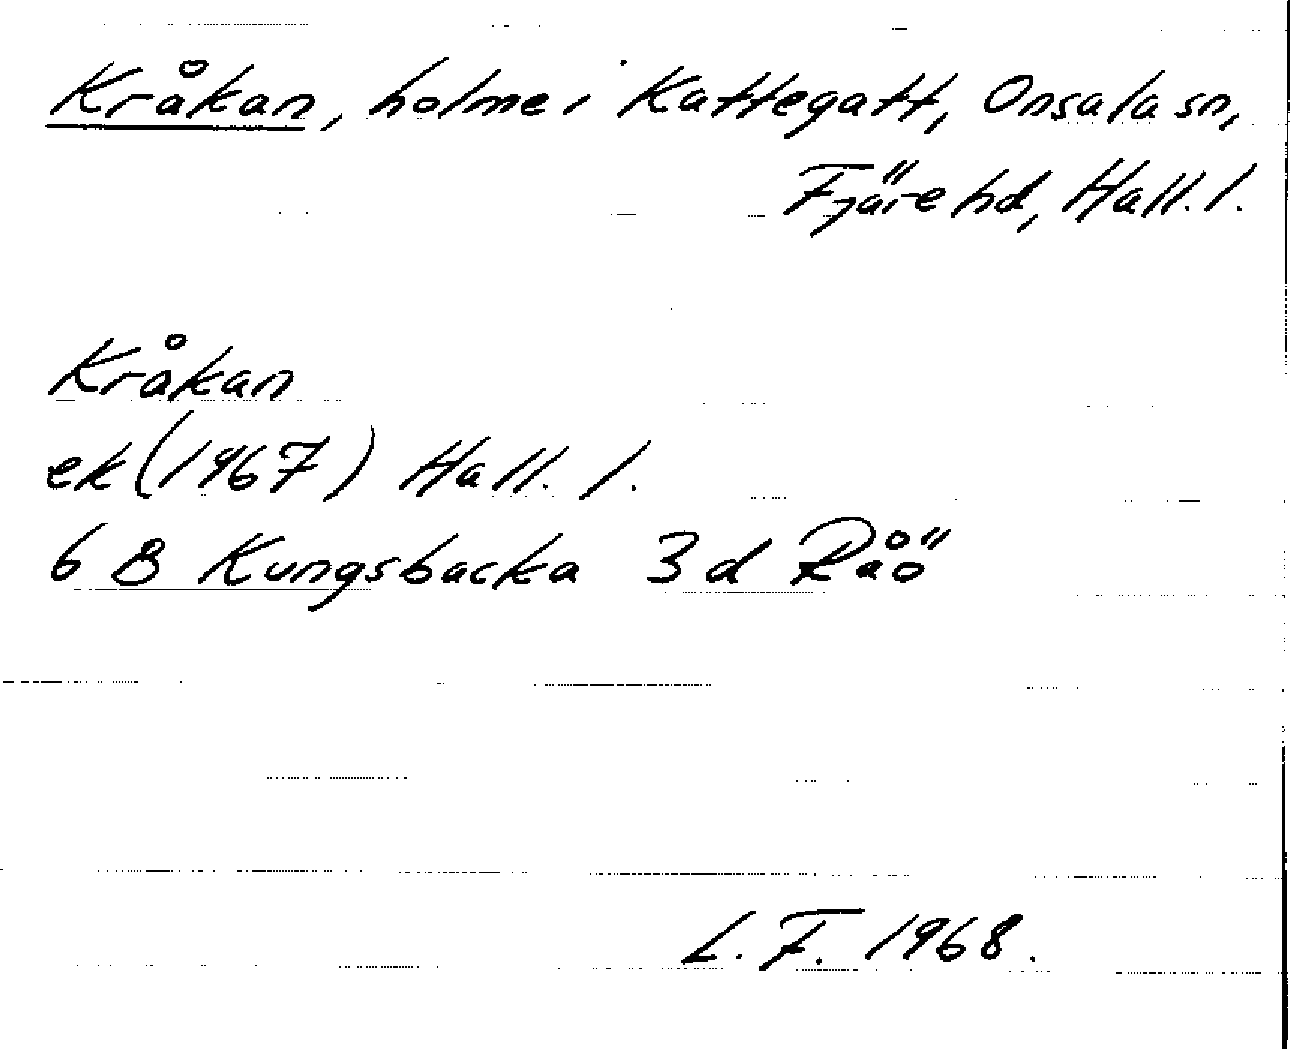 Kråkan, holme i Kattegatt, Onsala sn,
Fjäre hd, Hall. l.
Kråkan
ek (1967) Hall. l.
6 B Kungsbacka 3 d Råö
L. F. 1968.